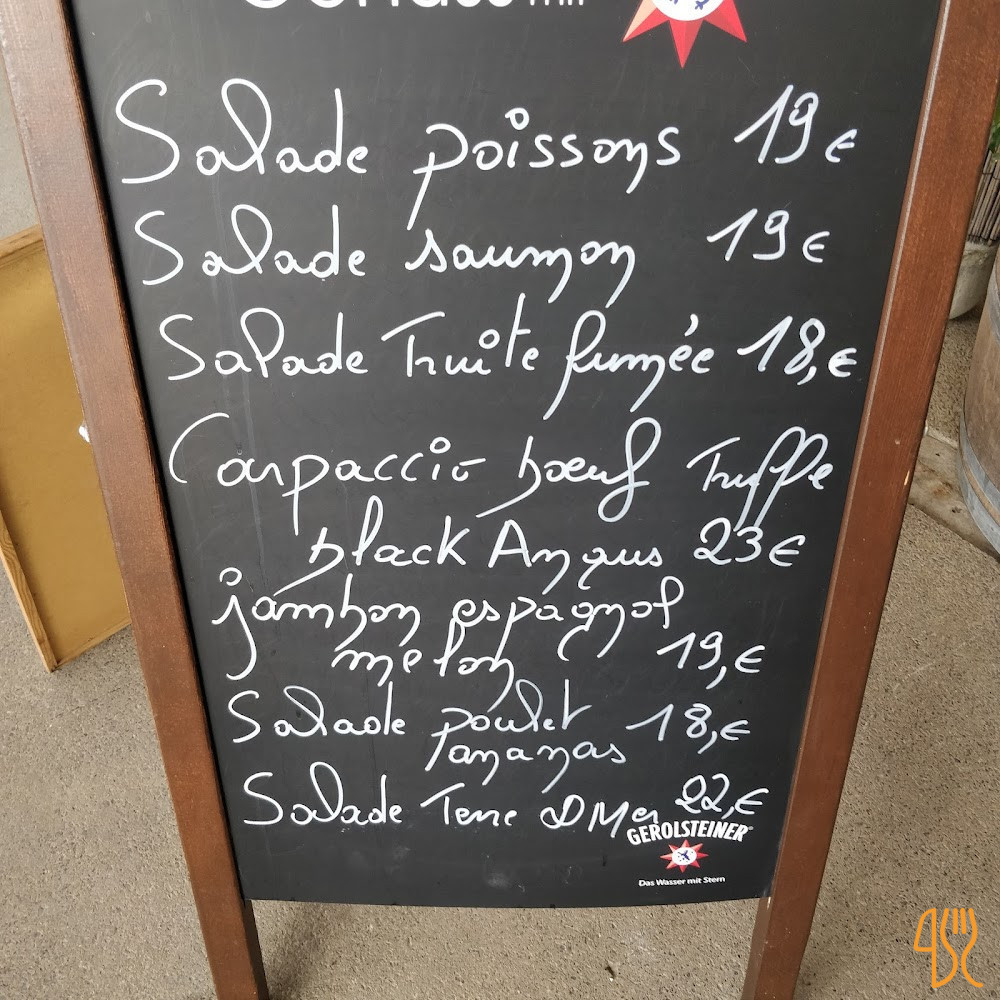 Salade poissons 19€
Salade saumon 19€
Salade Truite fumée 18,€
Carpaccio boeuf Truffe
black Angus 23€
jambon espagnol
melon 19,€
Salade poulet 18,€
ananas
Salade Terre & Mer 22,€
GEROLSTEINER
Das Wasser mit Stern